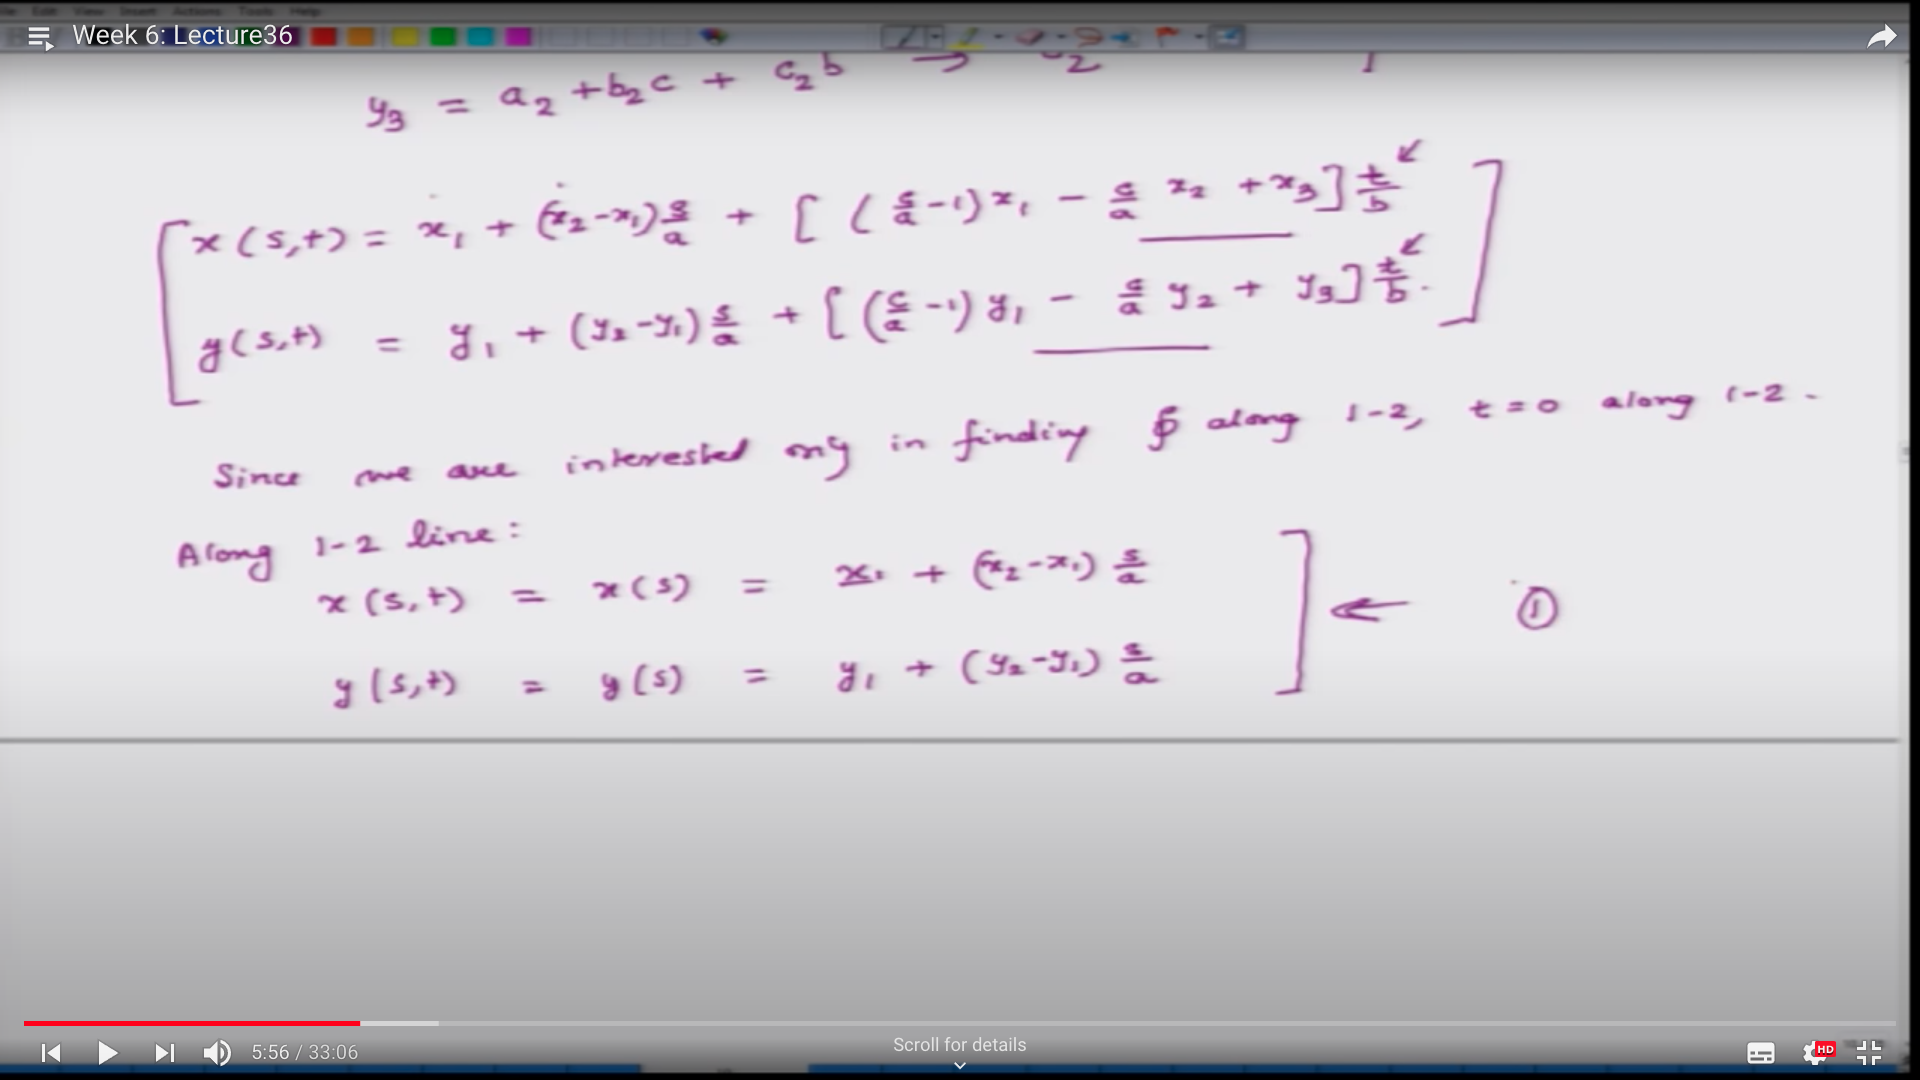 File Edit View Insert Actions Tools Help
Week 6: Lecture36
y₃ = a₂ + b₂c + c₂b →
x(s,t) = x₁ + (x₂-x₁) s/a + [(c/a -1)x₁ - c/a x₂ + x₃] t/b
y(s,t) = y₁ + (y₂-y₁) s/a + [(c/a -1) y₁ - c/a y₂ + y₃] t/b.
Since we are interested only in finding ∮ along 1-2, t=0 along 1-2.
Along 1-2 line:
x(s,t) = x(s) = x₁ + (x₂-x₁) s/a
← ①
y(s,t) = y(s) = y₁ + (y₂-y₁) s/a
5:56 / 33:06
Scroll for details
HD